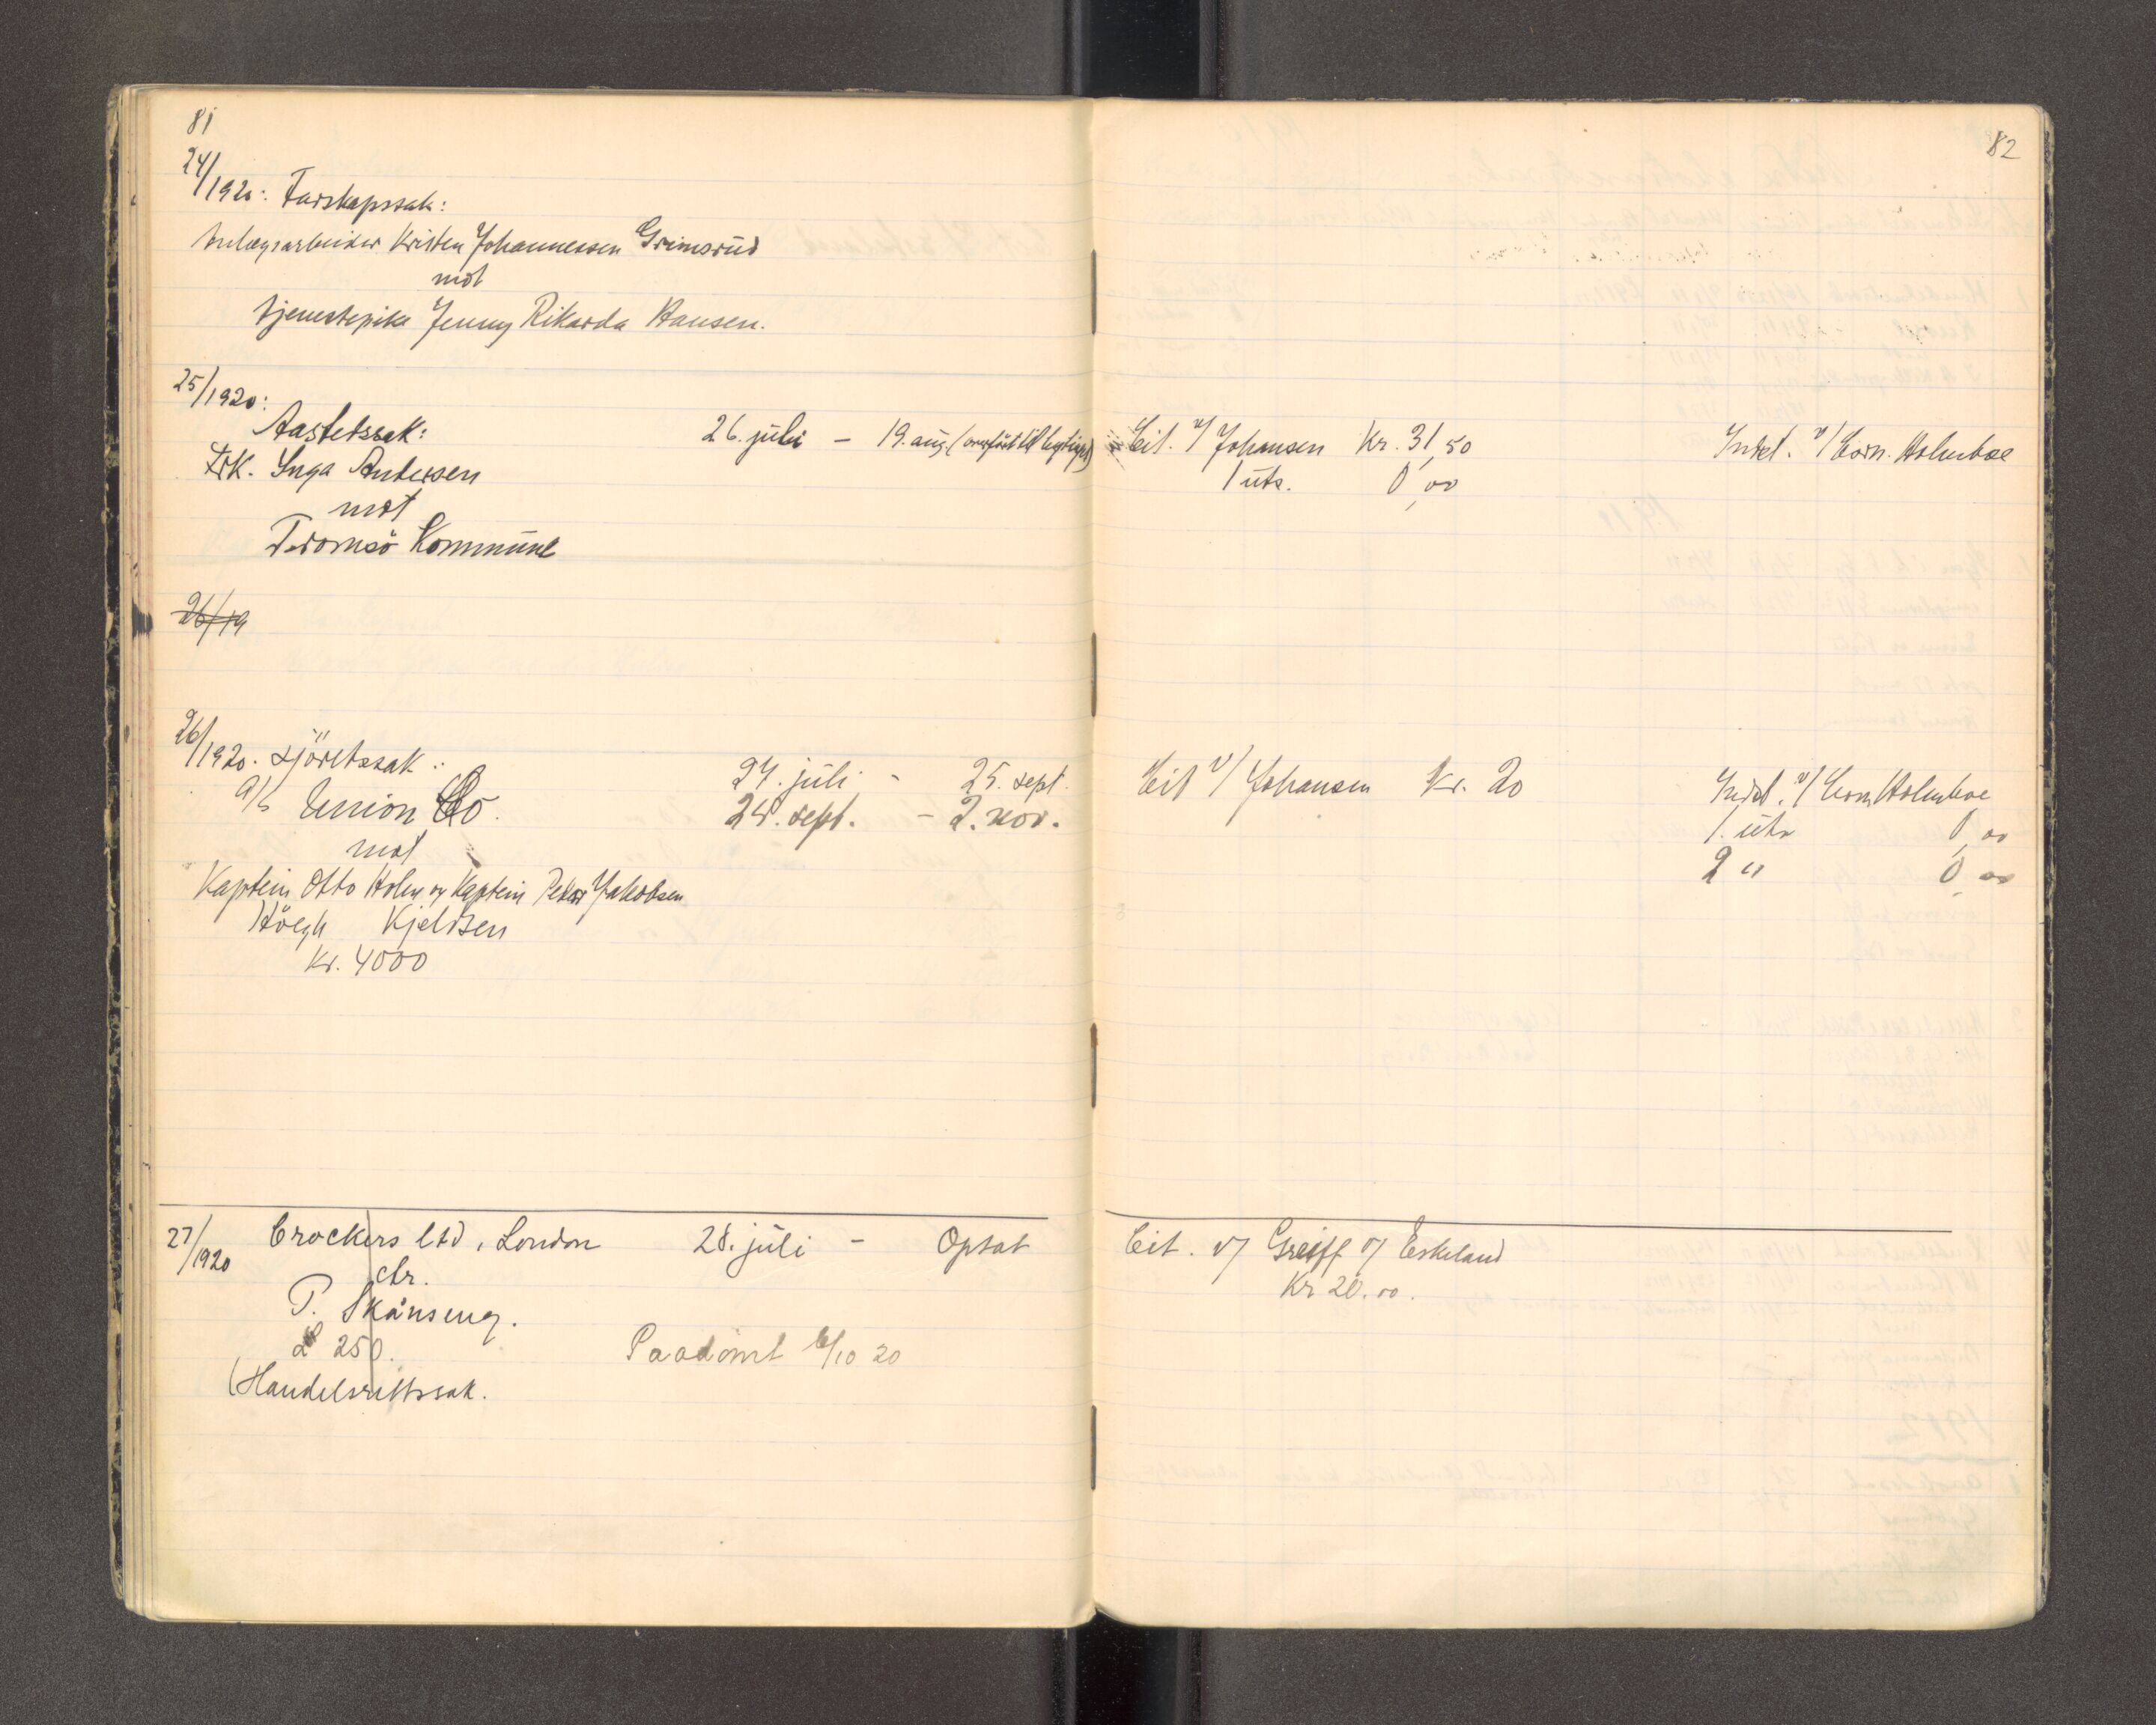 81
24/1920: Farskapssak:
Anlægsarbeider Kristen Johannessen Grimsrud
mot
tjenestepike Jenny Rikarda Hansen.
25/1920:
Aastetssak:
Frk. Inga Andersen
mot
Tromsö Kommune
26. juli – 19. aug. (overført til
26/19
26/1920. Sjöretssak:
A/S Union Co.
mot
Kaptein Otto Holm og Kaptein Peder Jakobsen
Höegh Kjeldsen
Kr. 4000
27. juli - 25. sept.
24. sept. - 2. nov.
27/1920
Crockers Ltd, London
ctr.
P. Skånseng.
£ 250.
(Handelsrettssak.
28. juli - Optat
Paadömt 6/10 20
82
Cit. v/ Johansen Kr. 31,50
1 uts. 0,00
Indst. v/ Corn. Holmboe
Cit v/ Johansen Kr. 20
Indst. v/ Corn Holmboe
1. uts 0,00
2 " 0,00
Cit. v/ Greiff v/ Eskeland
Kr 20.00.